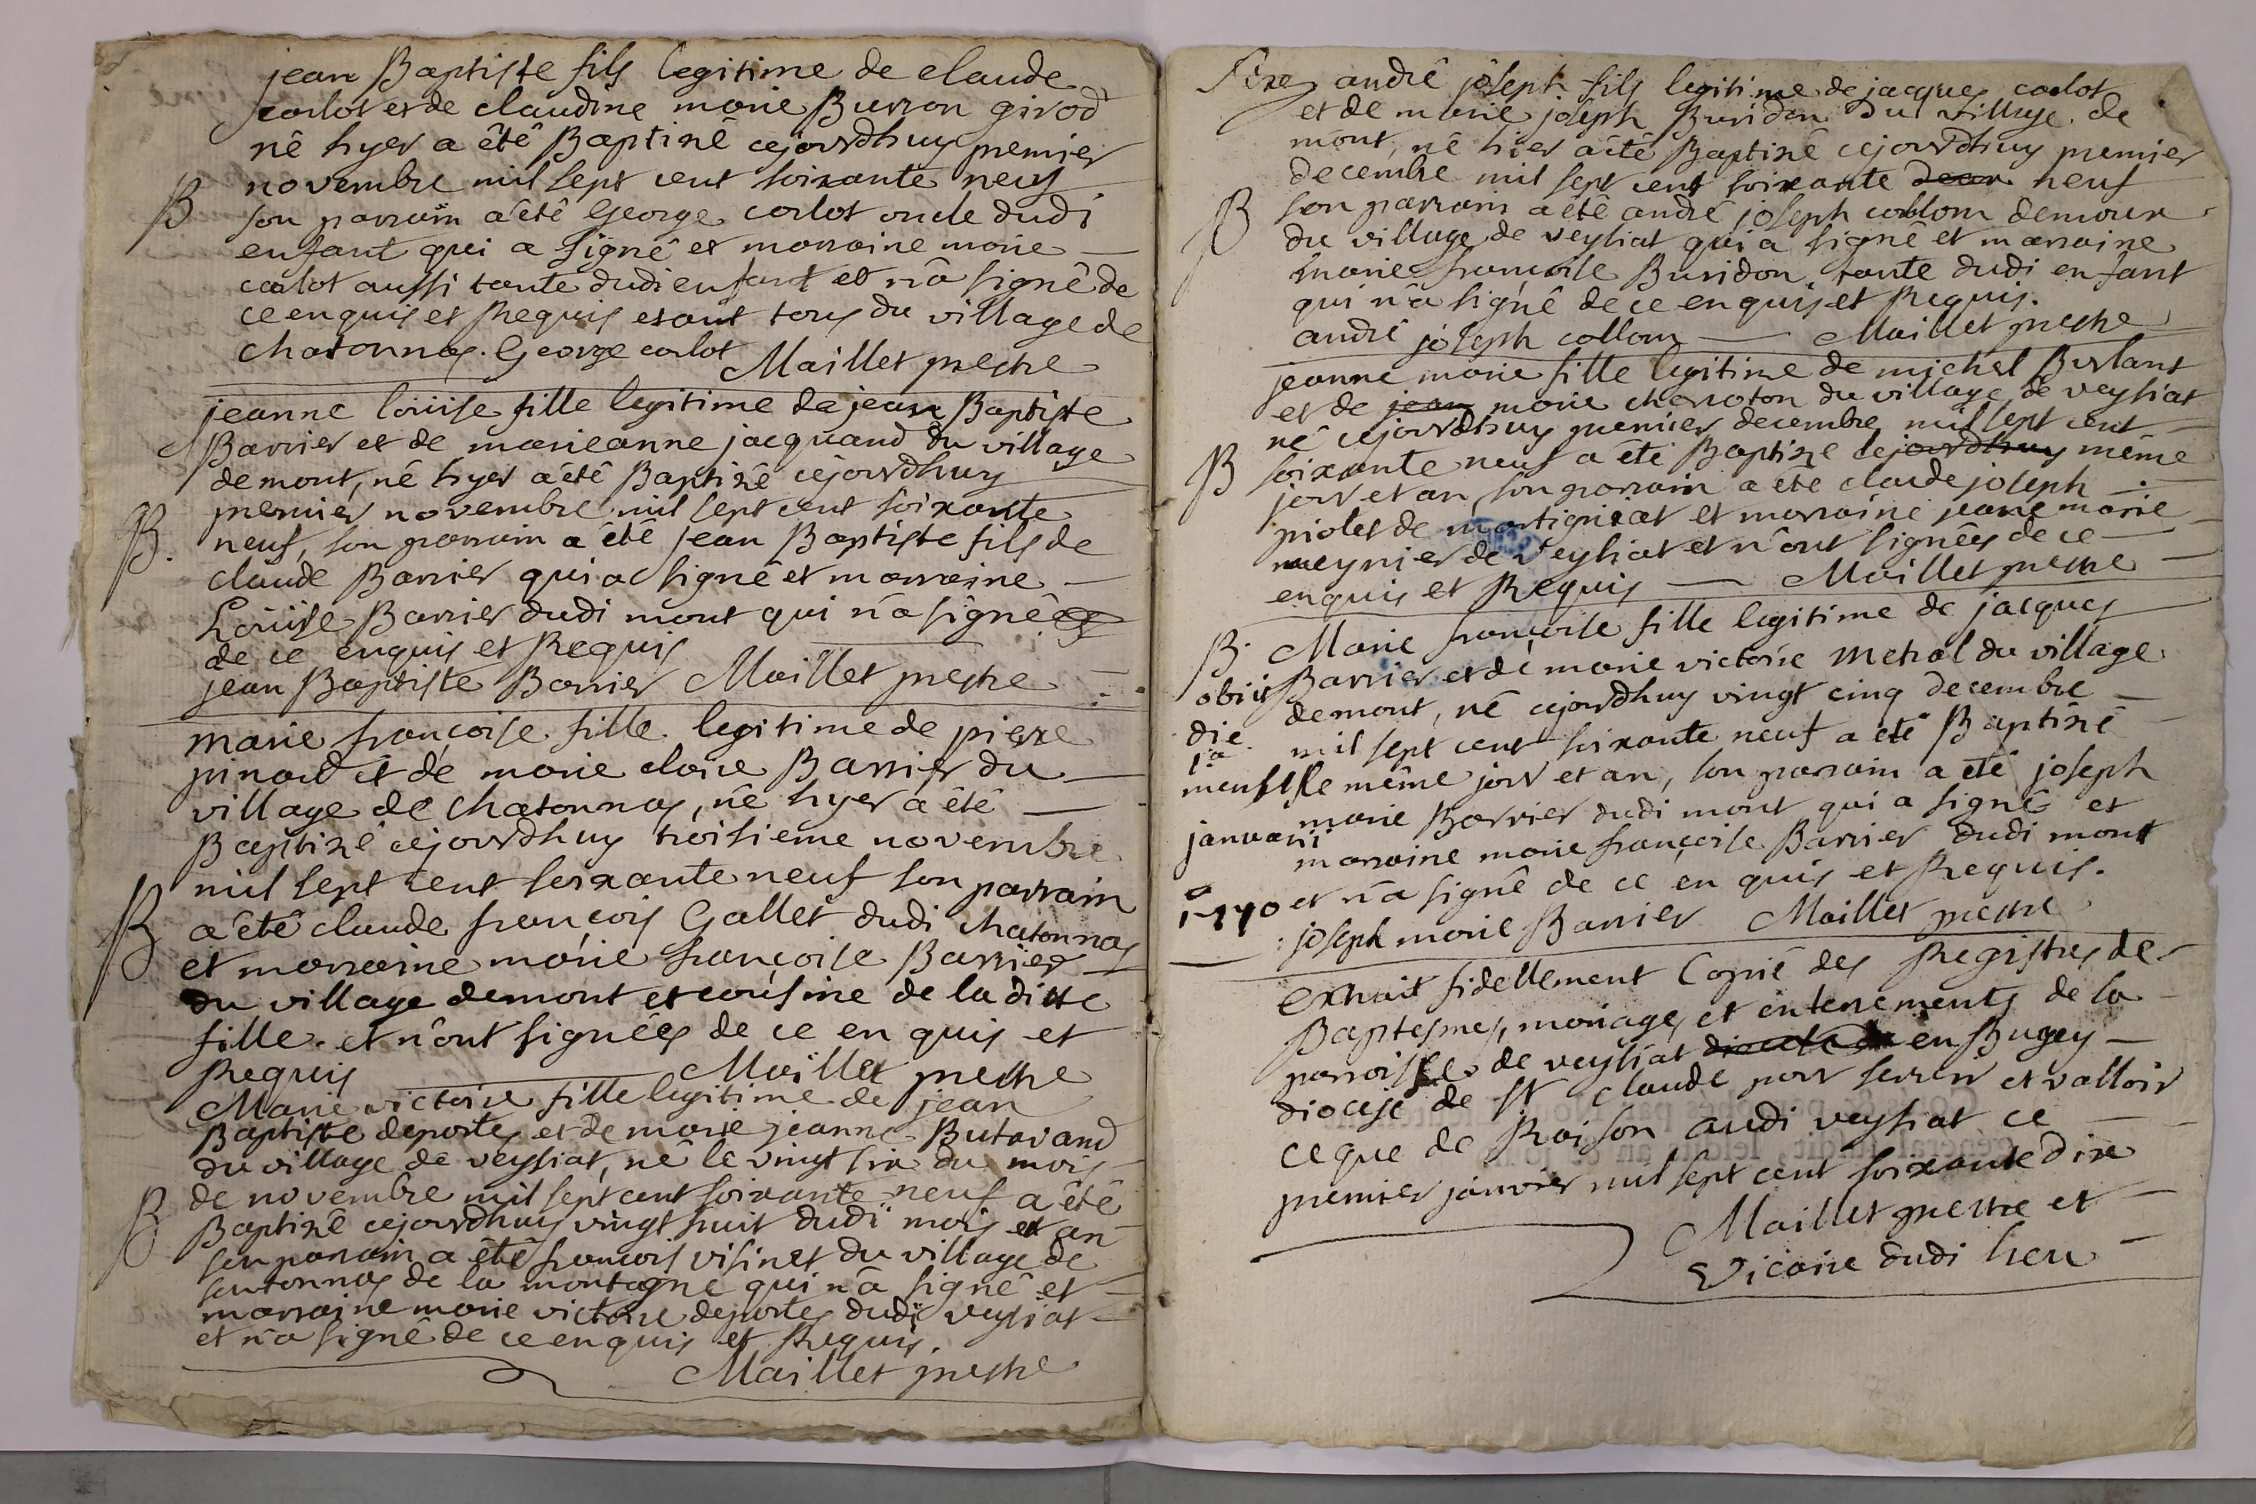 jean Baptiste fils legitime de claude
carlot et de claudine marie Burron girod
né hyer a êtê Baptizê cejourdhuy premier
novembre mil sept cent soixante neuf
B
son parrain a étê George carlot oncle dudi
enfant qui a signé et marraine marie
carlot aussi tante dudi enfant et n'a signê de
ce enquis et Requis etant tous du village de
chatonnas. George carlot Maillet prestre
jeanne loüise fille legitime de jean Baptiste
Barrier et de marieanne jacquand du village
de mont, nê hyer a étê Baptizê cejourdhuy
premier novembre mil sept cent soixante
B.
neuf, son parrain a êtê jean Baptiste fils de
claude Barrier qui a signé et marraine
Loüise Barrier dudi mont qui n'a signê
de ce enquis et Requis
jean Baptiste Barrier Maillet prestre
Marie françoise fille legitime de pierre
pinard et de marie claire Barrier du
village de chatonnas, né hyer a êtê
Baptizé cejourdhuy troisieme novembre
mil sept cent soixante neuf son parrain
B
a étê claude françois Gallet dudi chatonnas
et marraine marie françoise Barrier
du village de mont et cousine de la ditte
fille. et n'ont signées de ce en quis et
Requis Maillet prestre
Marie victoire fille legitime de jean
Baptiste deportes et de marie jeanne Butavand
du village de veysiat, né le vingt six du mois
B
de novembre mil sept cent soixante neuf a êtê
Baptizé cejourdhuy vingt huit dudi mois et an
son parrain a êtê françois visinet du village de
sentonnas de la montagne qui n'a signê et
marraine marie victoire deportes dudi veysiat
et n'a signê de ce enquis et Requis.
Maillet prestre
andré joseph fils legitime de jacque carlot
et de marie joseph Buridon du village de
mont, né hier a étê Baptizé cejourdhuy premier
decembre mil sept cent soixante deux neuf
B
son parrain a étê andrê joseph collom demeurx
du village de veysiat qui a signê et marraine
marie françoise Buridon tante dudi enfant
qui n'a signê de ce enquis et Requis.
andrê joseph collom Maillet prestre
jeanne marie fille legitime de michel Burlant
et de jean marie charroton du village de veysiat
né cejourdhuy premier decembre mil sept cent
B
soixante neuf a étê Baptize cejourdhuy même
jour et an son parrain a étê claude joseph
piolet de martignat et marraine jeane marie
meynier de veysiat et n'ont signêes de ce
enquis et Requis Maillet prestre
B.
Marie françoise fille legitime de jacques
Barrier et de marie victoire metral du village
obiit
de mont, né cejourdhuy vingt cinq decembre
die
mil sept cent soixante neuf a étê Baptizé
1a
mensis
le même jour et an, son parrain a été joseph
marie Barrier dudi mont qui a signé et
januarii
marraine marie françoise Barrier dudi mont
1770
et n'a signê de ce en quis et Requis.
joseph marie Barrier Maillet prestre
Extrait fidellement Copié des Registres de
Baptesmes, mariages et enterrements de la
paroisse de veysiat en Bugey
diocese de st claude pour servir et valloir
ce que de Raison audi veysiat ce
premier janvier mil sept cent soixante dix
Maillet prestre et
Vicaire dudi lieu